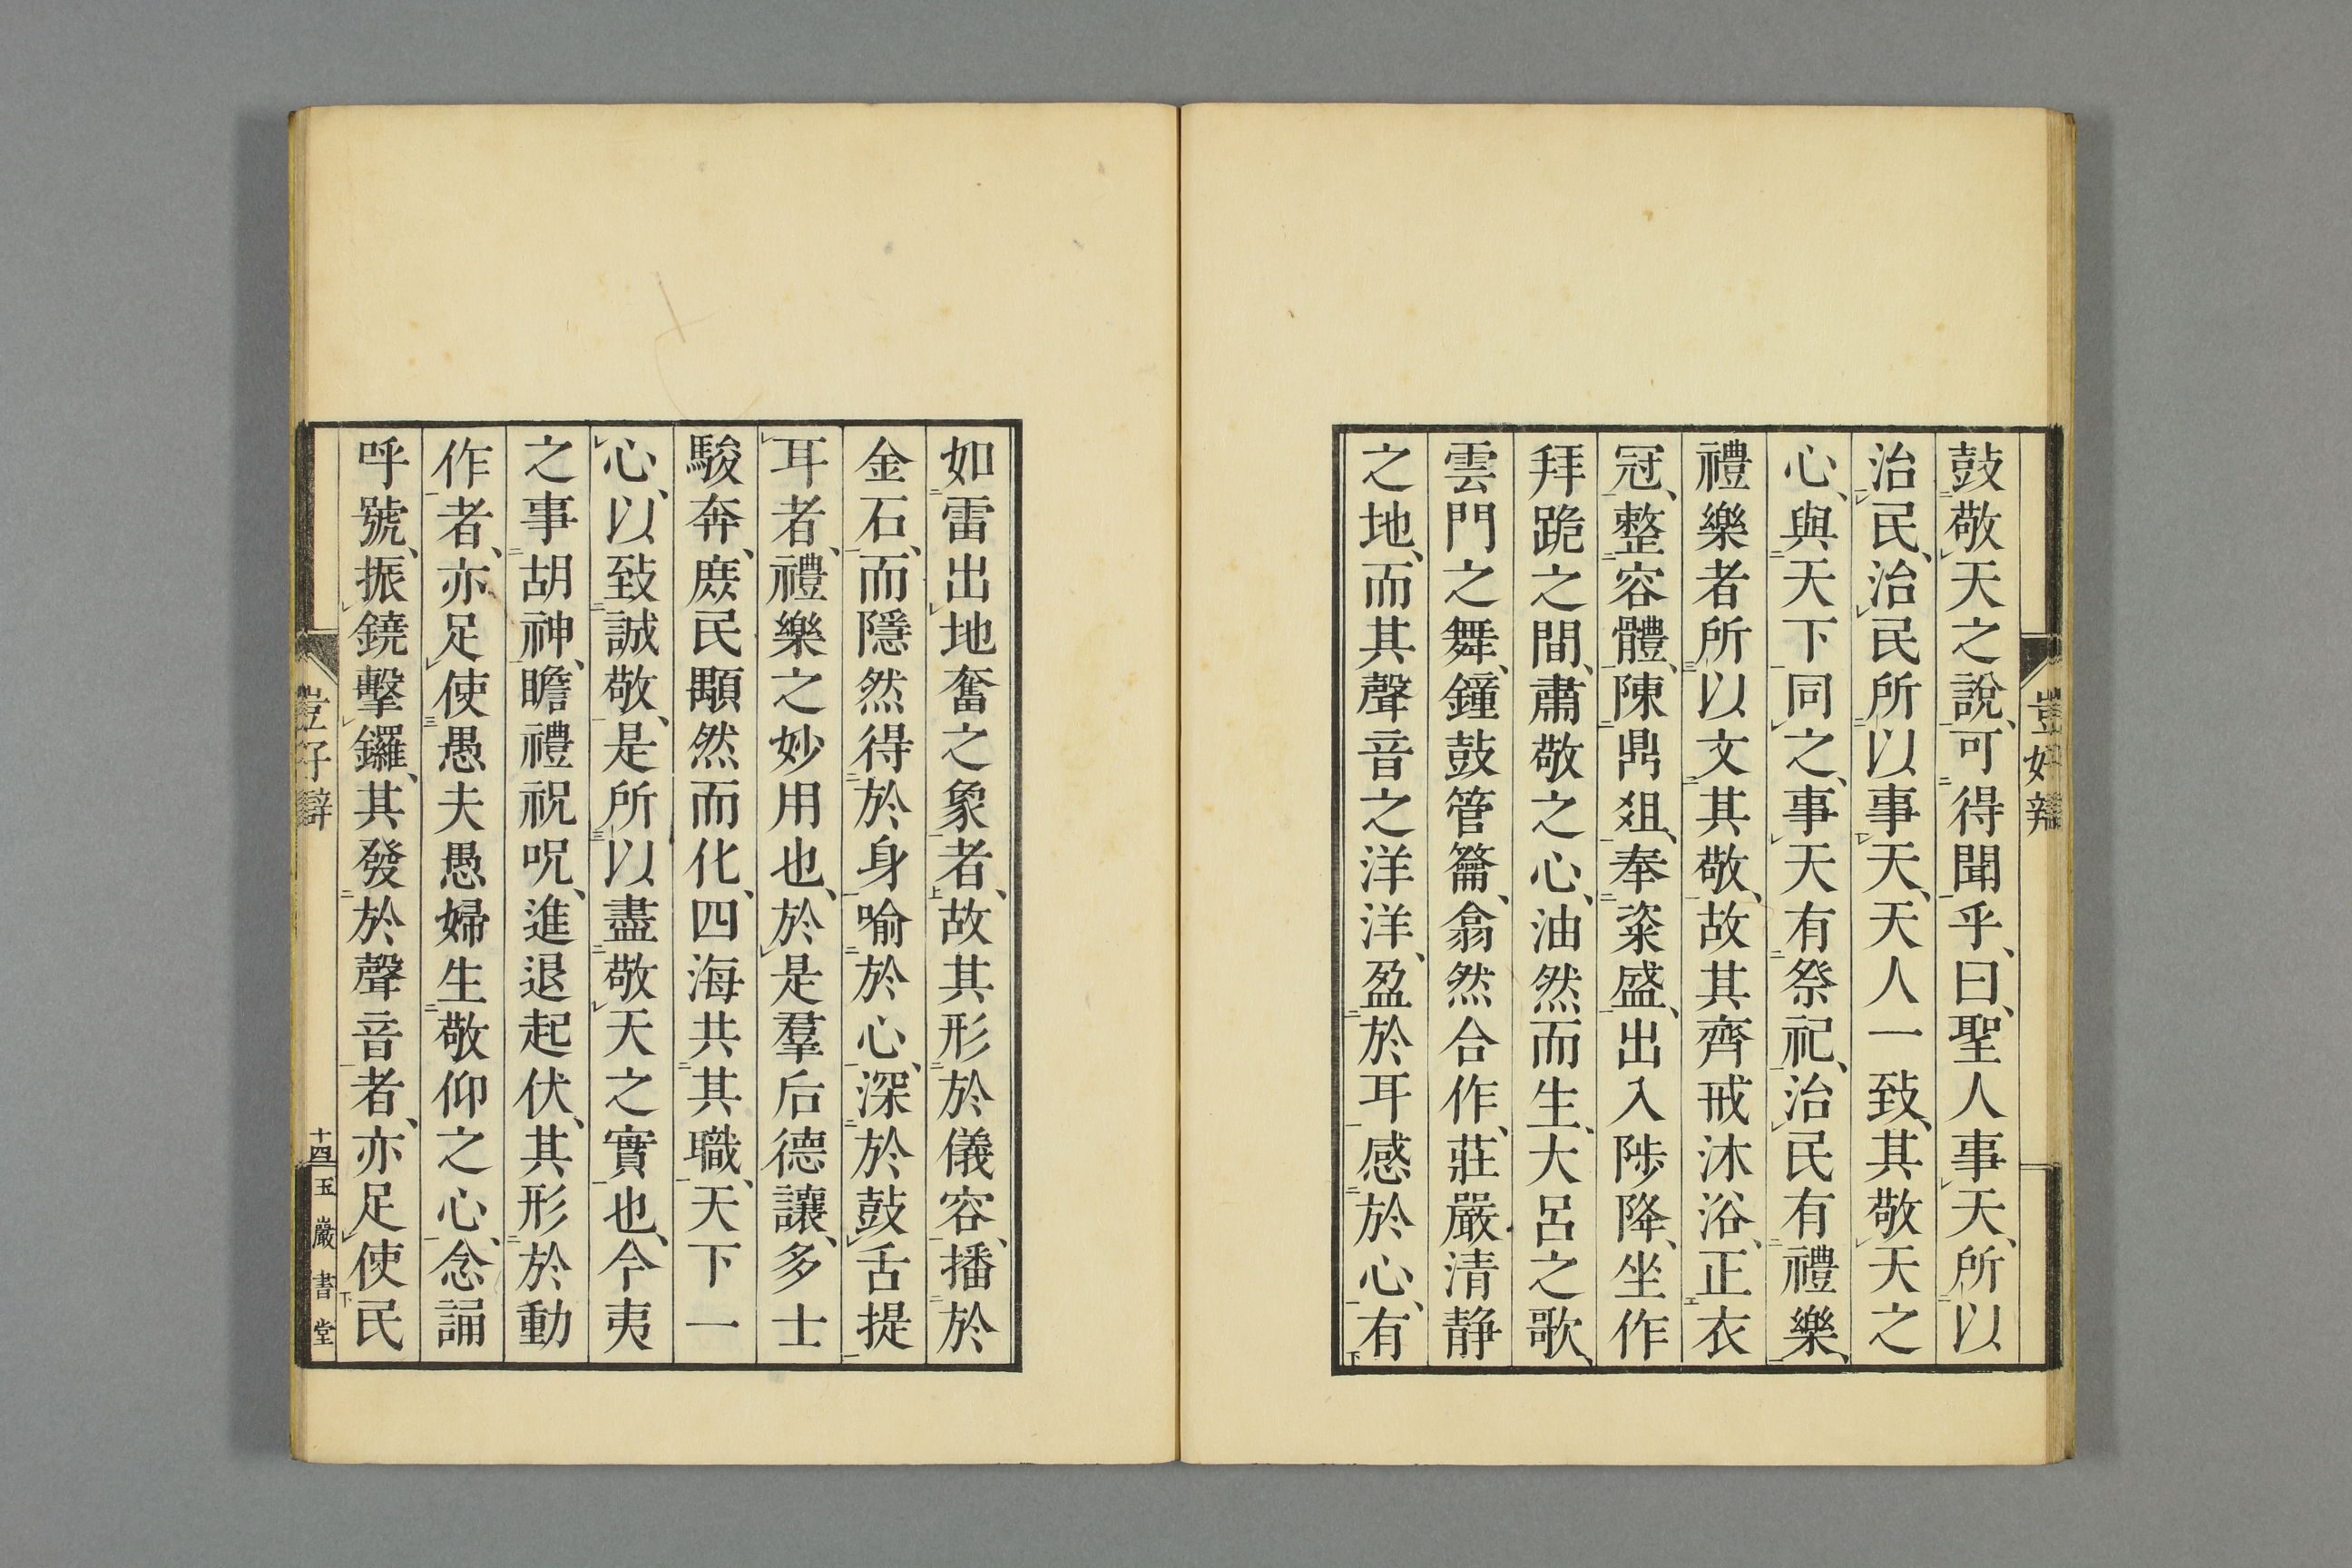 豈好辯
鼓敬天之說、可得聞乎、曰、聖人事天、所以
治民、治民所以事天、天人一致、其敬天之
心、與天下同之、事天有祭祀、治民有禮樂、
禮樂者所以文其敬、故其齊戒沐浴、正衣
冠、整容體、陳鼎俎、奉粢盛、出入陟降、坐作
拜跪之間、肅敬之心、油然而生、大呂之歌、
雲門之舞、鐘鼓管籥、翕然合作、莊嚴清静
之地、而其聲音之洋洋、盈於耳感於心、有
如雷出地奮之象者、故其形於儀容、播於
金石、而隱然得於身喻於心、深於鼓舌提
耳者、禮樂之妙用也、於是羣后德讓、多士
駿奔、庶民顒然而化、四海共其職、天下一
心、以致誠敬、是所以盡敬天之實也、今夷
之事胡神、瞻禮祝呪、進退起伏、其形於動
作者、亦足使愚夫愚婦生敬仰之心、念誦
呼號、振鐃擊鑼、其發於聲音者、亦足使民
豈好辯
十四
玉巖書堂